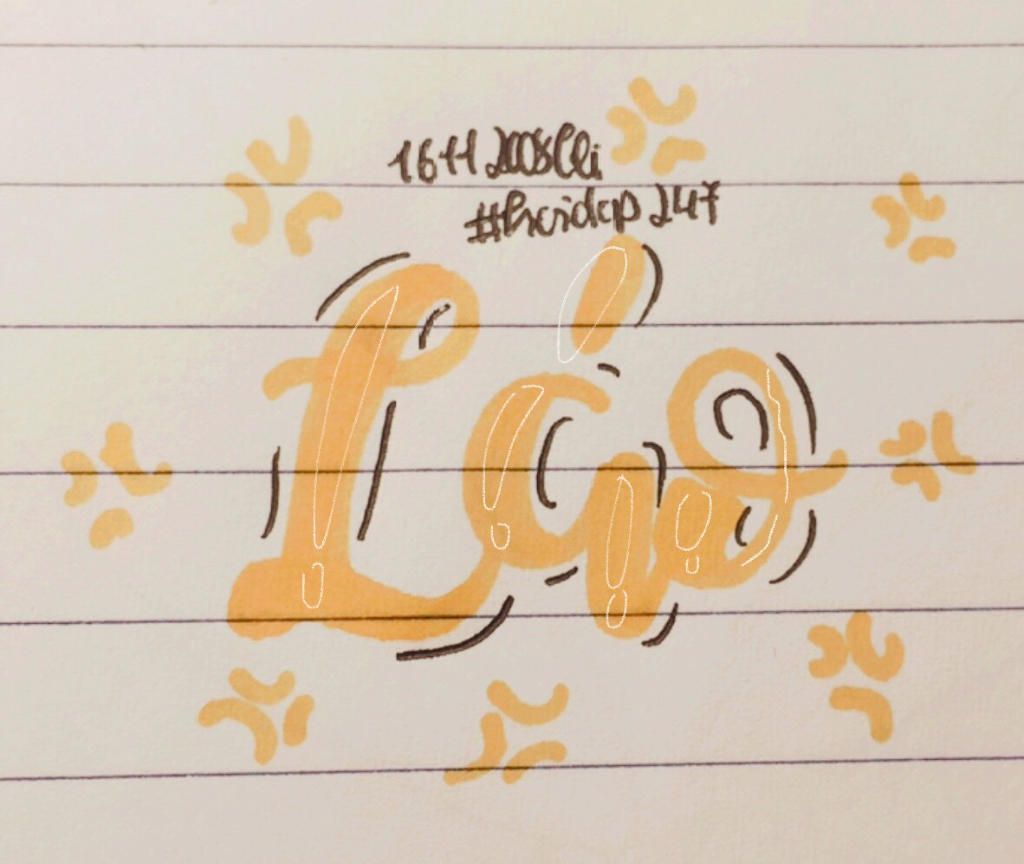 1611 2008Cli
#hoidap 247
Láo